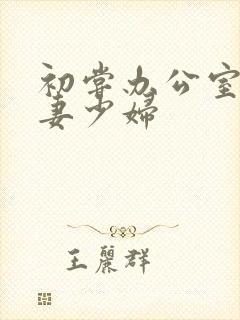 初尝办公室
妻少婦
王麗群